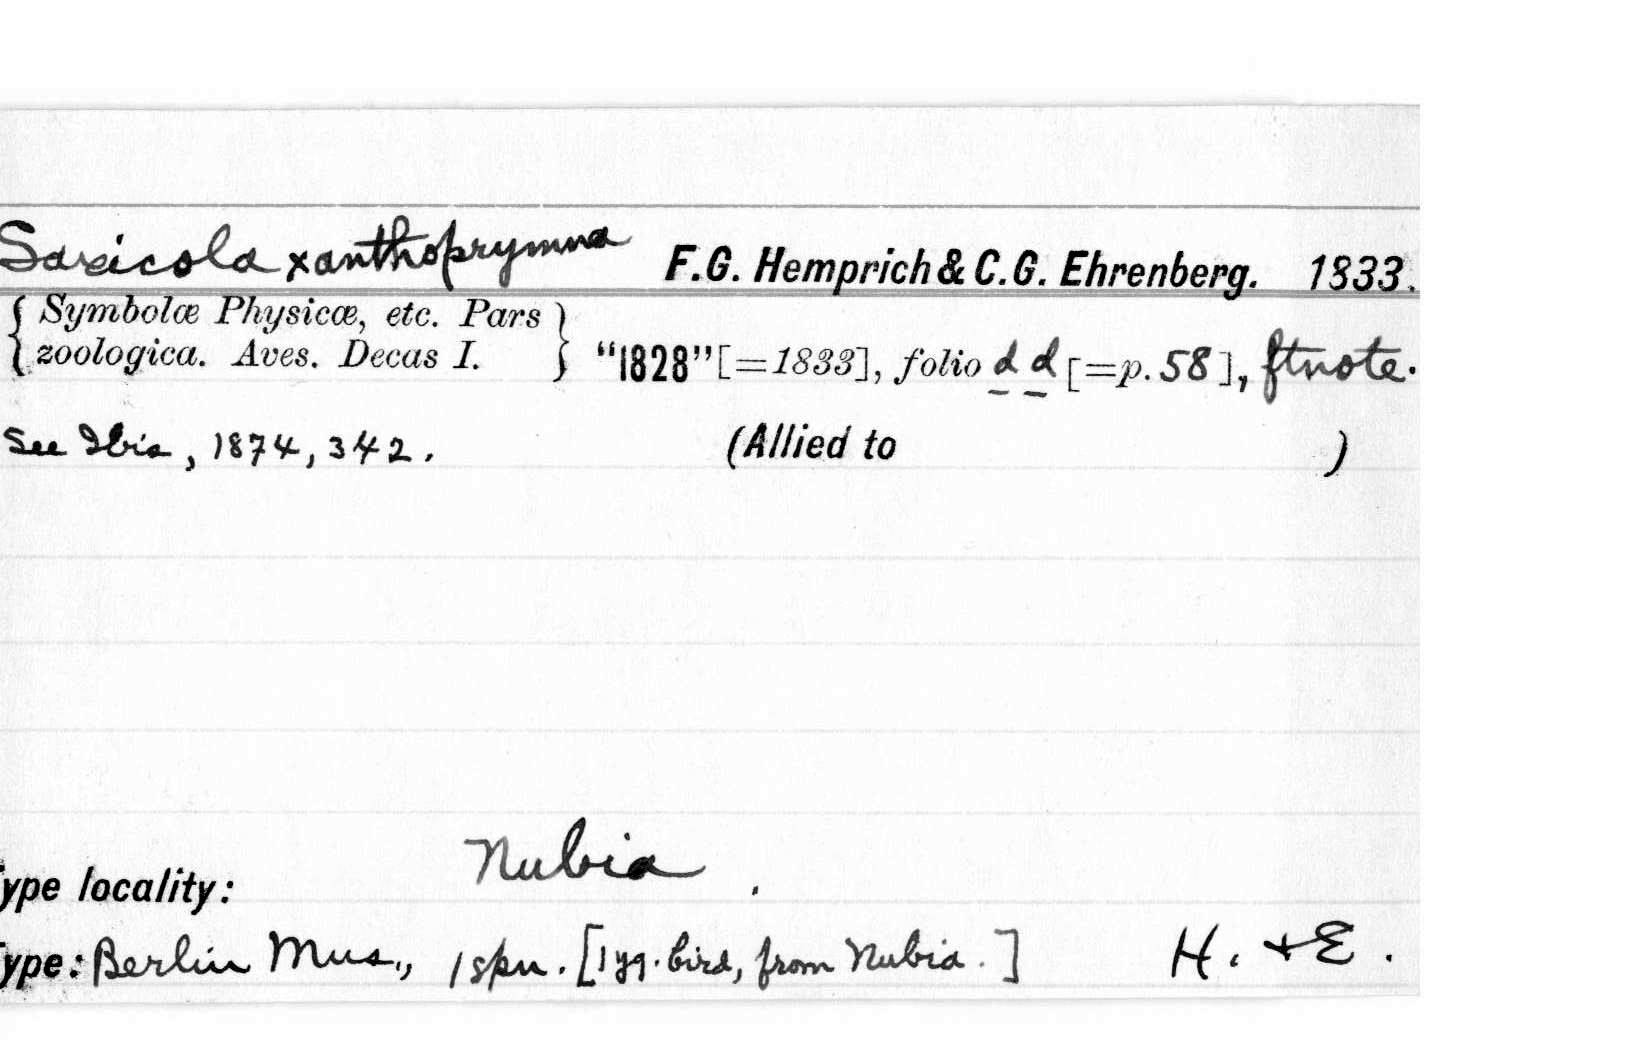 Saxicola xanthoprymna F.G. Hemprich & C.G. Ehrenberg. 1833.
{ Symbolæ Physicæ, etc. Pars
zoologica. Aves. Decas I. } "1828" [=1833], folio d d [=p. 58], ftnote.
See Ibis, 1874, 342. (Allied to )
Nubia.
ype locality:
ype: Berlin Mus., 1 spn. [1 yg. bird, from Nubia.] H. + E.